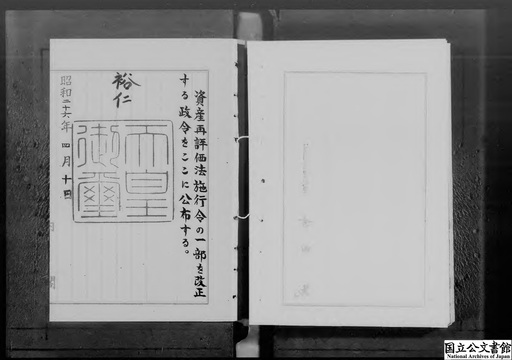 資産再評価法施行令の一部を改正
する政令をここに公布する。
裕仁
天皇御璽
昭和二十六年四月十日
国立公文書館
National Archives of Japan